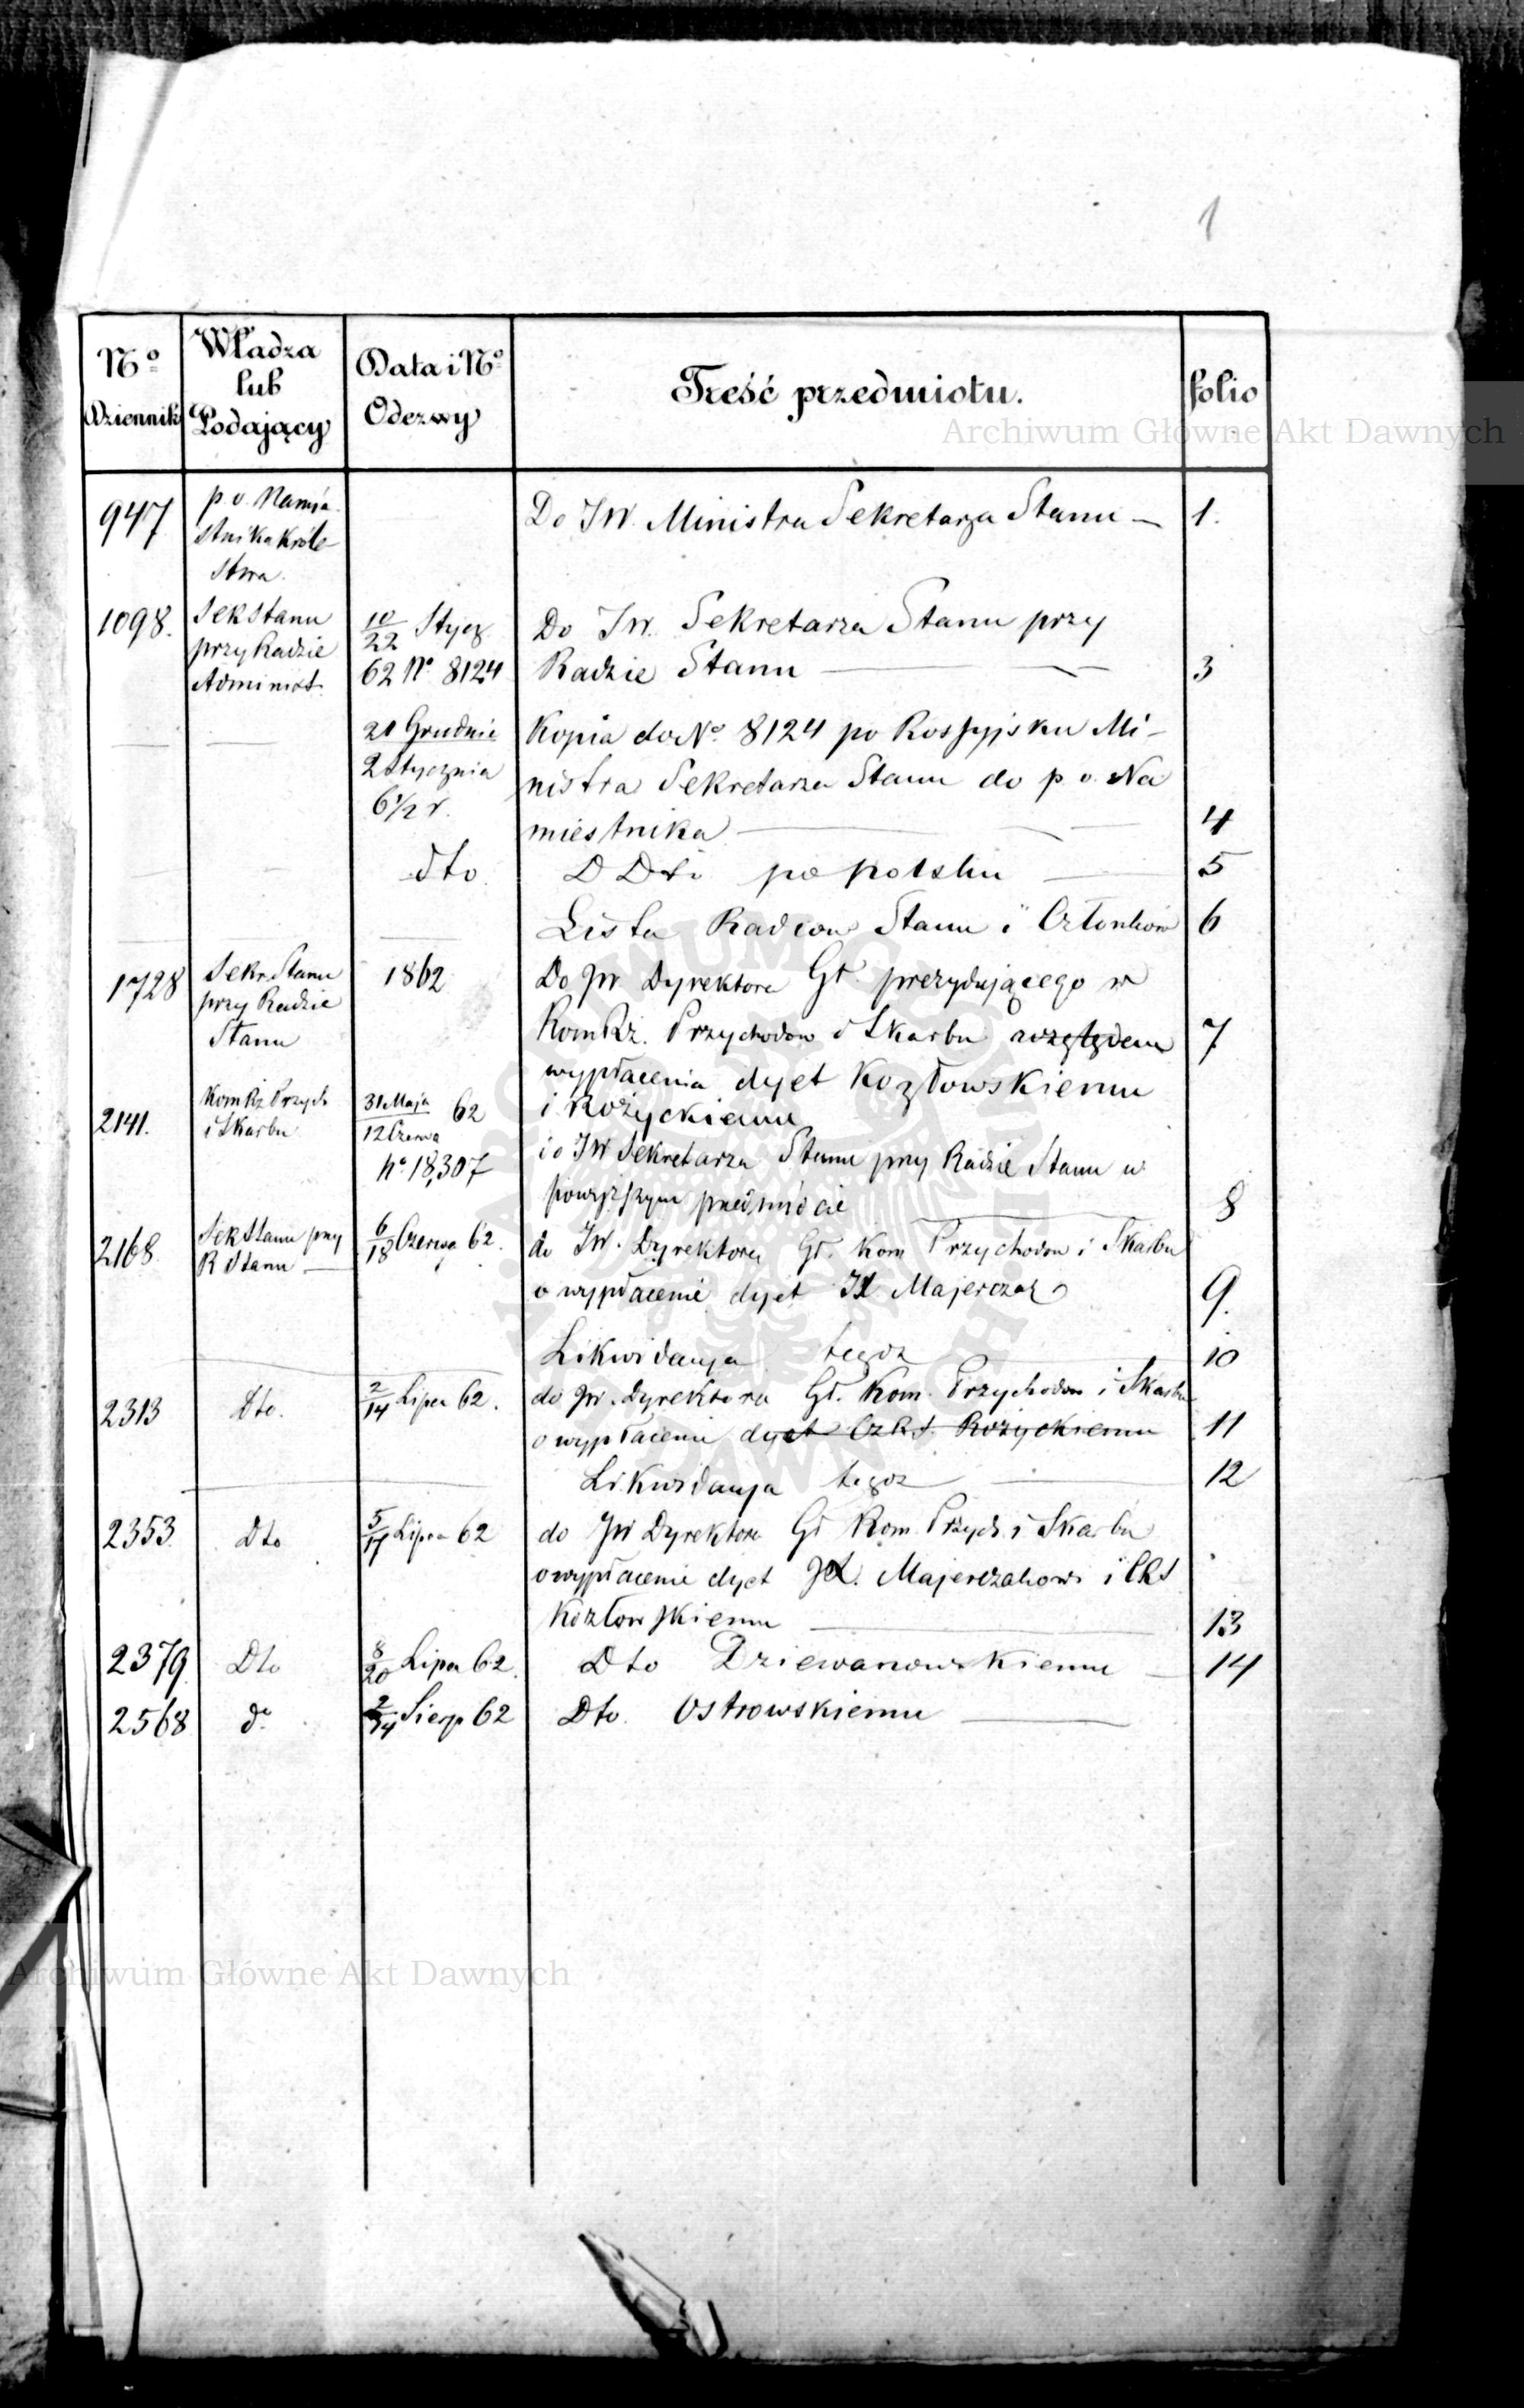 1
Nº Dziennik
Władza lub Podający
Data i Nº Odezwy
Treść przedmiotu.
folio
Archiwum Główne Akt Dawnych
947 p. o. Namia- Do JW. Ministra Sekretarza Stanu — 1.
stnika Króle-
stwa.
1098. Sek Stanu 10/22 Stycz Do JW. Sekretarza Stanu przy
przy Radzie 62 Nº 8124 Radzie Stanu — 3
Administ.
— — 21 Grudnia Kopia do Nº 8124 po Rossyjsku Mi-
2 Stycznia nistra Sekretarza Stanu do p. o. Na
6 1/2 r. miestnika — 4
dto. D Dto po polsku — 5
Lista Radców Stanu i Członków 6
1728 Sekr. Stanu 1862 Do JW Dyrektora Gł. prezydującego w
przy Radzie Kom Rz. Przychodów i Skarbu względem 7
Stanu wypłacenia dyet Kozłowskiemu
i Rożyckiemu
2141. Kom Rz Przych 31 Maja 62
i Skarbu 12 Czerwca
Nº 18,307 JW Sekretarza Stanu przy Radzie Stanu w
powyższym przedmiocie 8
2168. Sek Stanu przy 6/18 Czerwca 62. do JW. Dyrektora Gł. Kom Przychodow i Skarbu
R Stanu — o wypłacenie dyet Majerczak 9.
Likwidacya tegoż 10
2313 Dto. 2/14 Lipca 62. do JW. Dyrektora Gł. Kom. Przychodow i Skarbu
o wypłacenie dyet Rożyckiemu 11
Likwidacya tegoż — 12
2353. Dto 5/17 Lipca 62 do JW Dyrektora Gł Kom. Przych. i Skarbu
o wypłacenie dyet Majerczakowi i
Kozłowskiemu — 13
2379 Dto 8/20 Lipca 62. Dto Dziewanowskiemu — 14
2568 dº 2/14 Sierp 62 Dto. Ostrowskiemu —
Archiwum Główne Akt Dawnych